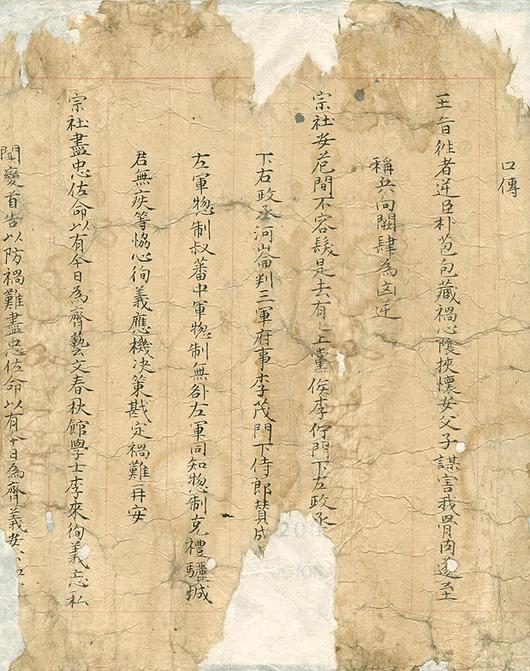 口傳
王旨徃者逆臣朴苞包藏禍心隂挾懷安父子謀害我骨肉遂至
稱兵向闕肆為凶逆
宗社安危間不容髮是去有上黨侯李佇門下左政丞
下右政丞河崙判三軍府事李茂門下侍郎賛成
左軍惣制叔蕃中軍惣制無咎左軍同知惣制克禮驪城
君無疾等恊心徇義應機决策戡定禍難再安
宗社盡忠佐命以有今日為齊藝文春秋館學士李來徇義忘私
聞變首告以防禍難盡忠佐命以有今日為齊義安